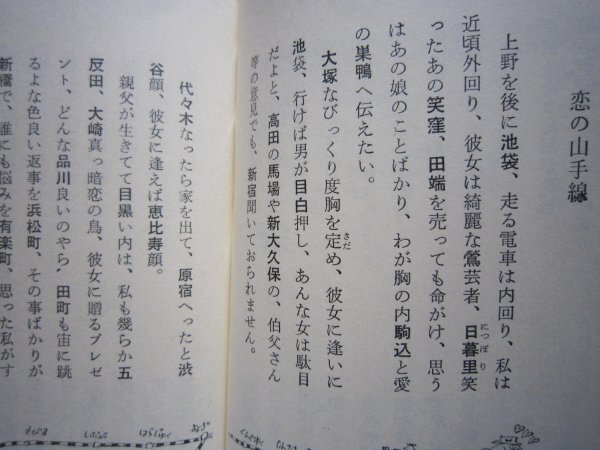 恋の山手線
上野を後に池袋、走る電車は内回り、私は
近頃外回り、彼女は綺麗な鶯芸者、日暮里笑
にっぽり
ったあの笑窪、田端を売っても命がけ、思う
はあの娘のことばかり、わが胸の内駒込と愛
の巣鴨へ伝えたい。
大塚なびっくり度胸を定め、彼女に逢いに
さだ
池袋、行けば男が目白押し、あんな女は駄目
だよと、高田の馬場や新大久保の、伯父さん
等の意見でも、新宿聞いておられません。
代々木なったら家を出て、原宿へったと渋
谷顔、彼女に逢えば恵比寿顔。
親父が生きてて目黒い内は、私も幾らか五
反田、大崎真っ暗恋の鳥、彼女に贈るプレゼ
ント、どんな品川良いのやら、田町も宙に跳
るよな色良い返事を浜松町、その事ばかりが
新橋で、誰にも悩みを有楽町、思った私がす